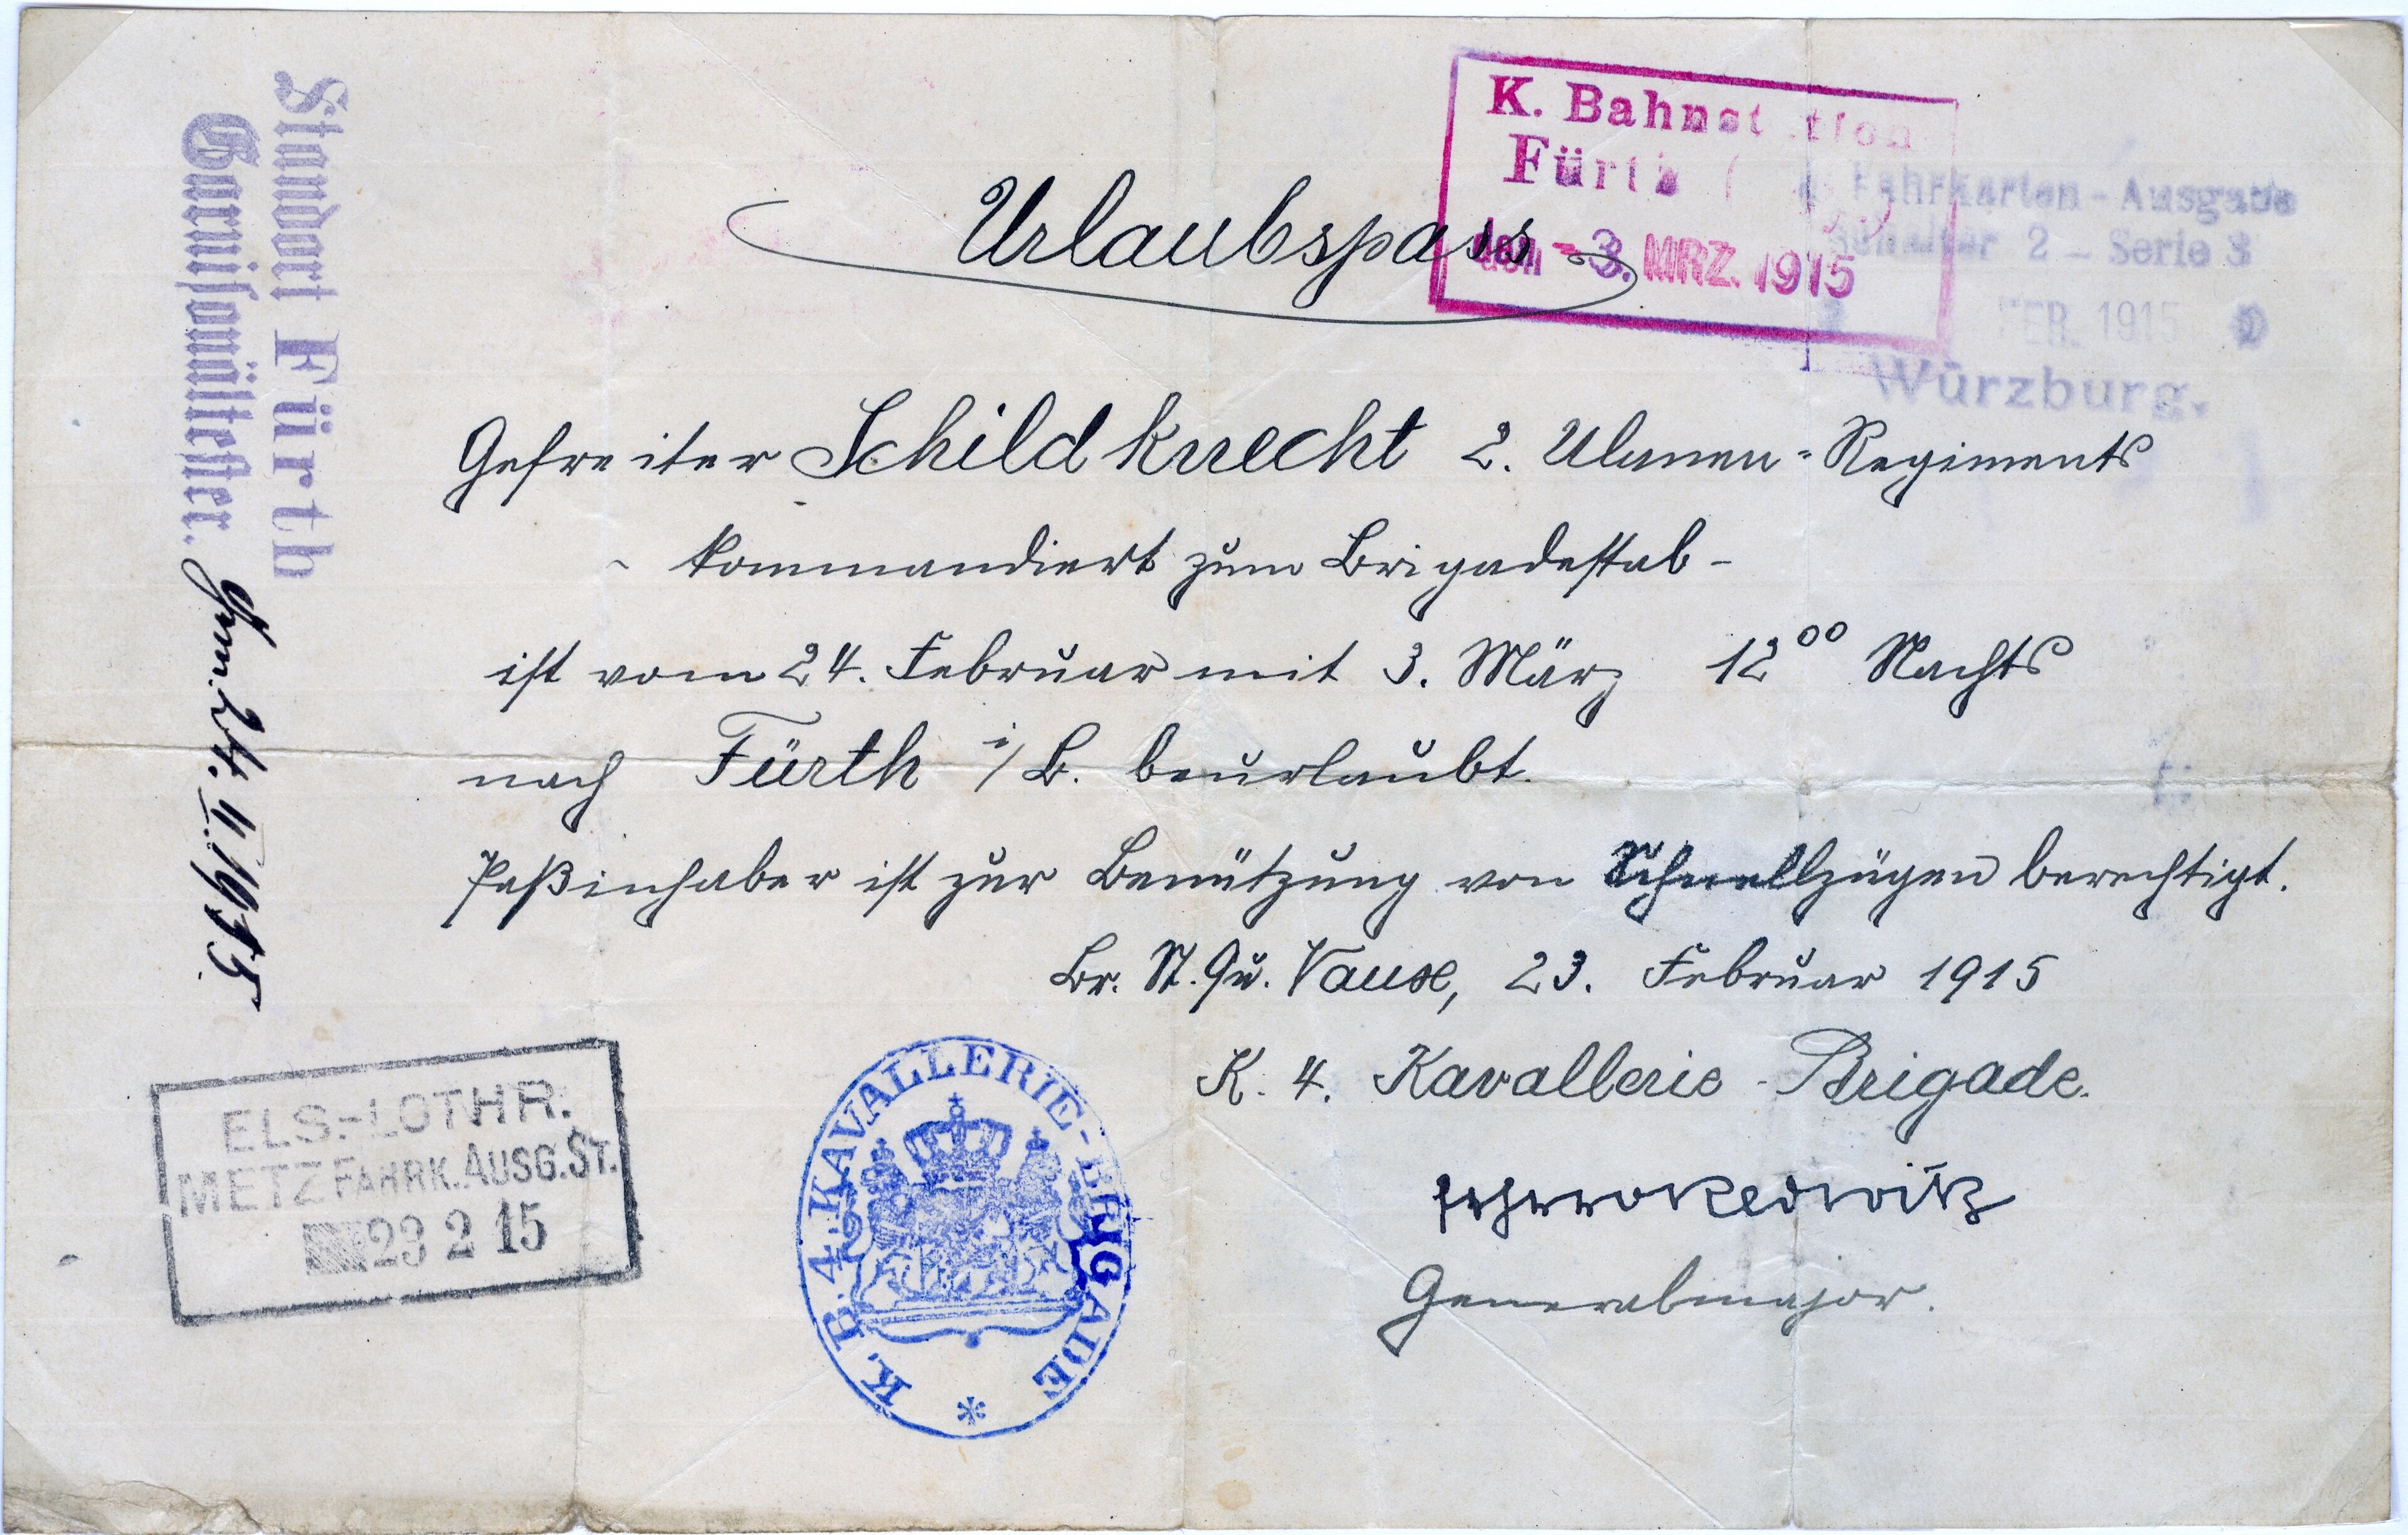 Standort Fürth
Garnisonältester.
24. II. 1915
K. Bahnst tion
Fürth (
den - 3. MRZ. 1915
Fahrkarten-Ausgabe
Schalter 2 - Serie 3
FEB. 1915
Würzburg.
Urlaubspass
Gefreiter Schildknecht 2. Ulanen-Regiments
- kommandiert zum Brigadestab -
ist vom 24. Februar mit 3. März 12⁰⁰ Nachts
nach Fürth i/B. beurlaubt.
Paßinhaber ist zur Benützung von Schnellzügen berechtigt.
Br. St. Qu. Vaux, 23. Februar 1915
K. 4. Kavallerie-Brigade.
Generalmajor.
K. B. 4. KAVALLERIE-BRIGADE
ELS.-LOTHR.
METZ FAHRK. AUSG. ST.
23 2 15